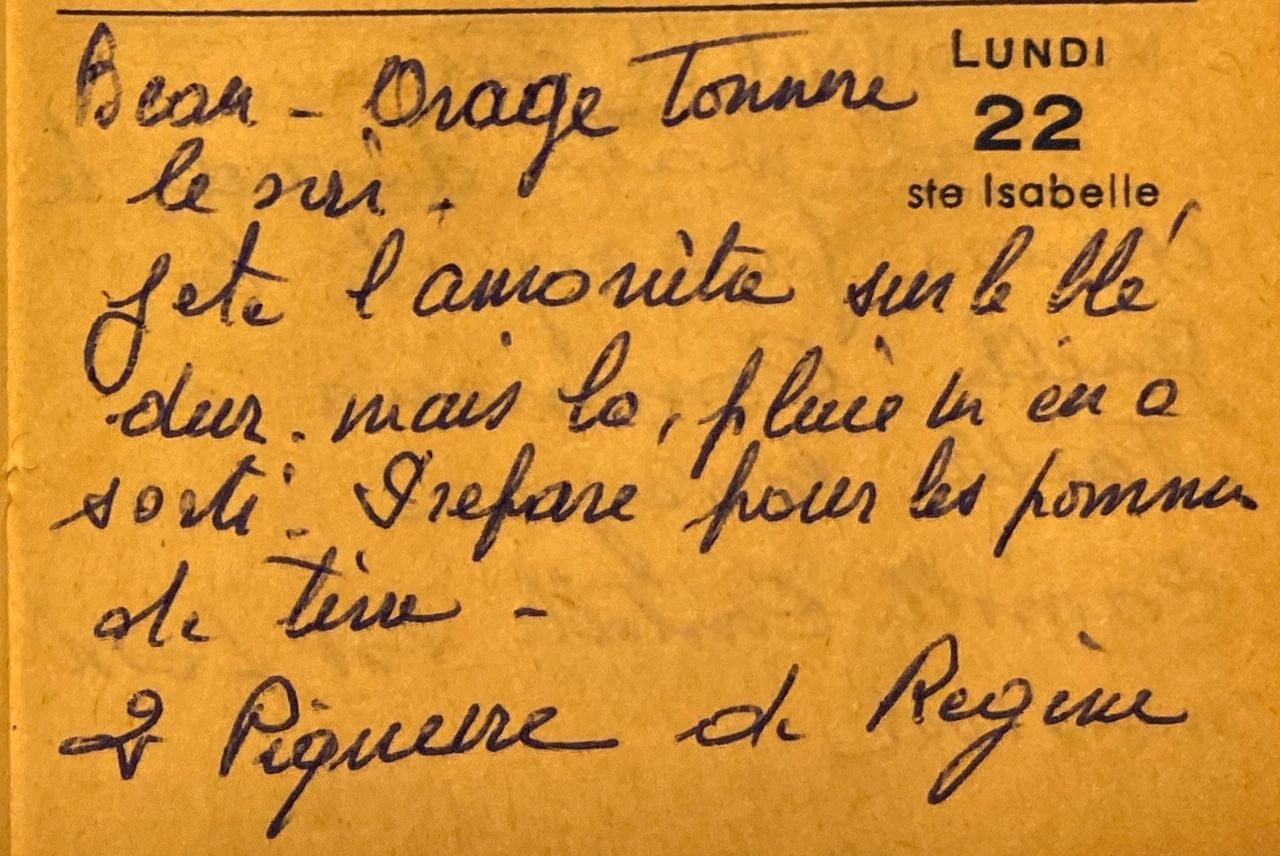 Beau - Orage Tonnere
LUNDI
22
ste Isabelle
le soir.
Jete l'amonitre sur le blé
dur. mais la, pluie m'en a
sorti. Prepare pour les pommes
de terre -
2 Piqueure de Regine